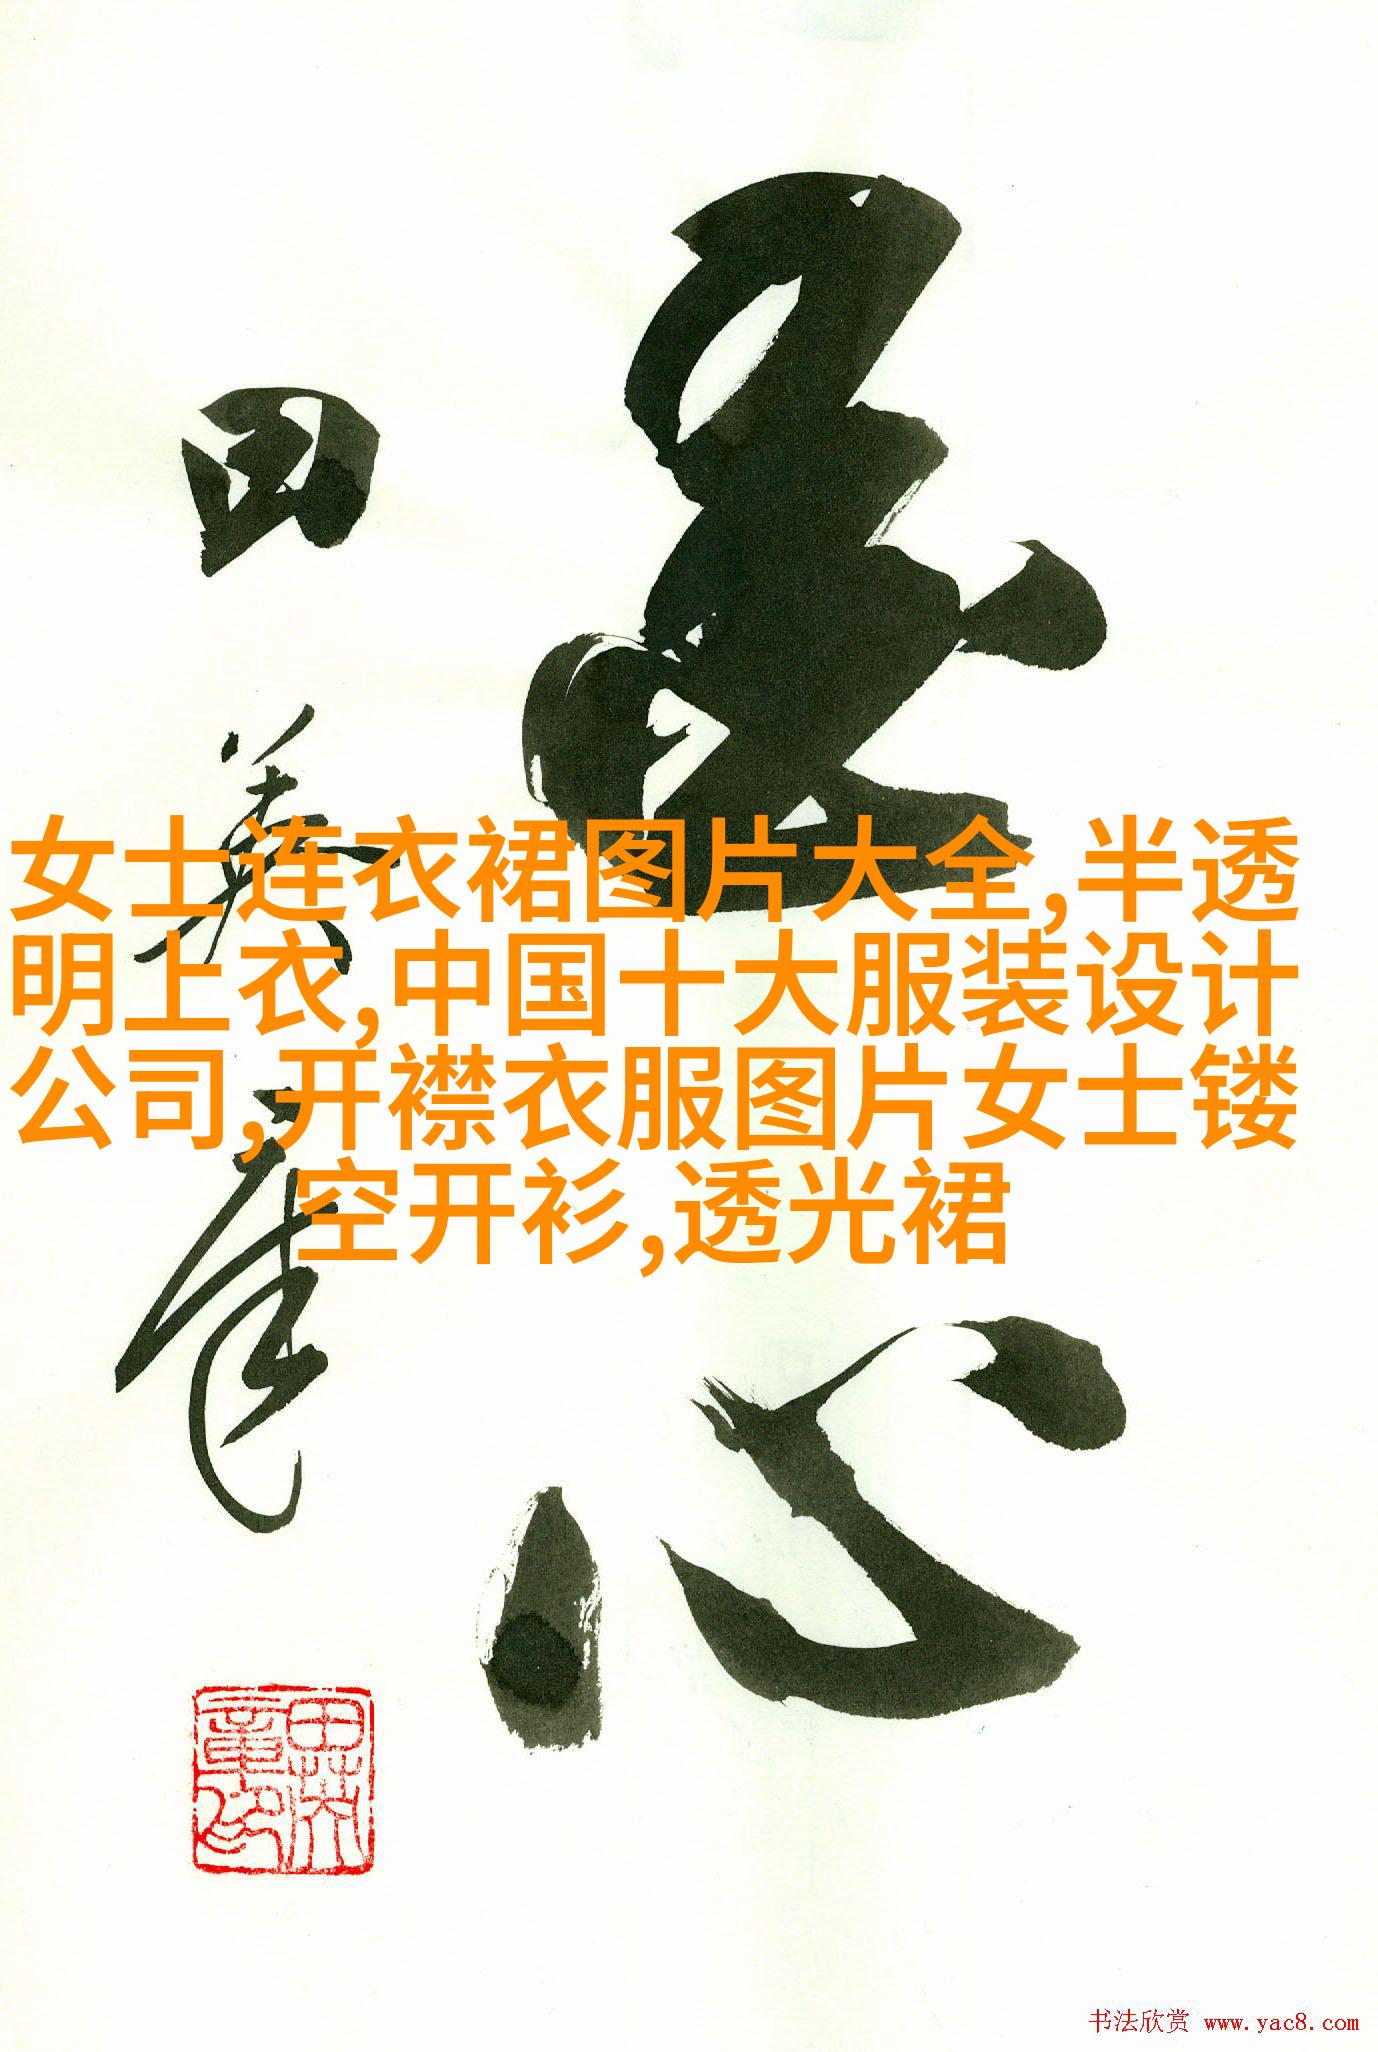 女士连衣裙图片大全,半透
明上衣,中国十大服装设计
公司,开襟衣服图片女士镂
空开衫,透光裙
田
英
章
心
田英章印
书法欣赏 www.yac8.com